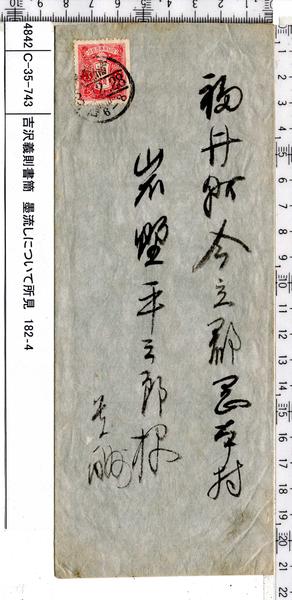 福井縣今立郡岡本村
岩野平三郎様
貴酬
4842 C-35-743 吉沢義則書簡 墨流しについて所見 182-4